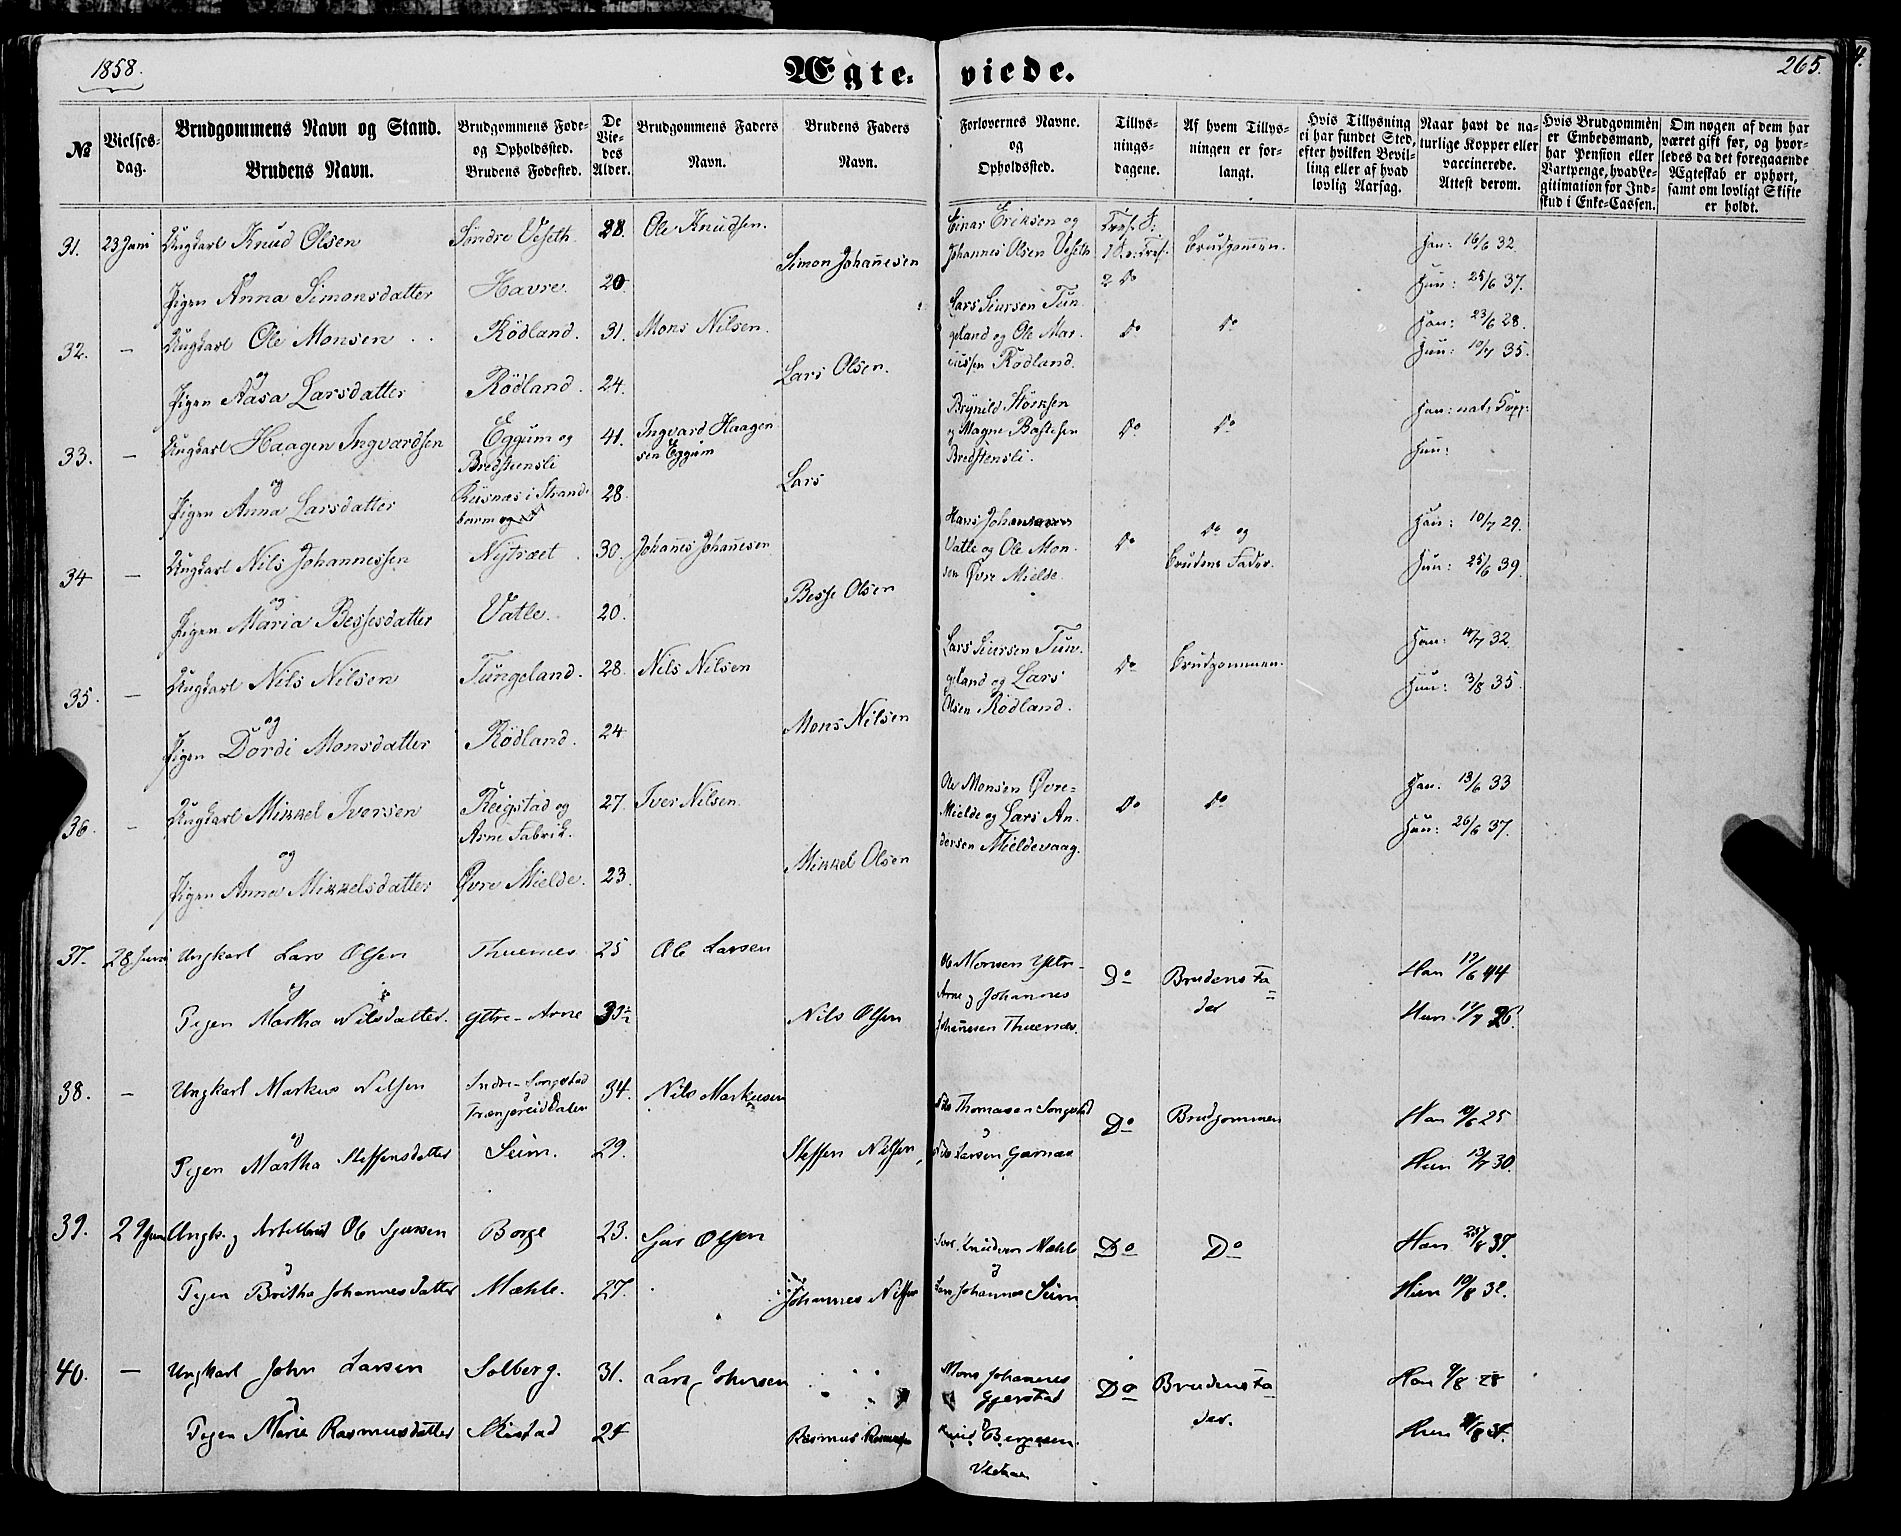 1858.
Ægte-viede.
265.
№
Vielses-dag.
Brudgommens Navn og Stand.
Brudens Navn.
Brudgommens Føde- og Opholdssted.
Brudens Fødested.
De Vie-des Alder.
Brudgommens Faders Navn.
Brudens Faders Navn.
Forlovernes Navne.
og
Opholdssted.
Tillys-nings-dagene.
Af hvem Tillys-ningen er for-langt.
Hvis Tillysning ei har fundet Sted, efter hvilken Bevil-ling eller af hvad lovlig Aarsag.
Naar havt de na-turlige Kopper eller vaccinerede.
Attest derom.
Hvis Brudgommen er Embedsmand, har Pension eller Vartpenge, hvad Le-gitimation for Ind-skud i Enke-Cassen.
Om nogen af dem har været gift før, og hvor-ledes da det foregaaende Ægteskab er ophørt, samt om lovligt Skifte er holdt.
31. 23 Juni Ungkarl Knud Olsen Søndre Veseth 28. Ole Knudsen.
Einar Eriksen og Johannes Olsen Veseth Brudgommen. Han: 16/6 32.
og
Pigen Anna Simonsdatter Havre. 20 Simon Johannesen
2 Do Hun: 25/6 37.
32. — Ungkarl Ole Monsen Rödland. 31. Mons Nilsen.
Lars Siursen Tungeland og Ole Rödland. Do Do Han: 23/6 28.
og
Pigen Aasa Larsdatter Rödland. 24. Lars Olsen.
Hun: 10/7 35.
33. — Ungkarl Haagen Ingvardsen Eggum og Bredstensli 41. Ingvard Haagensen Eggum
Brynild og Magne Bredstensli. Do Do Han: nat: Kopp:
og
Pigen Anna Larsdatter i Strandebarm 28. Lars
Hun:
34 — Ungkarl Nils Johannessen Nytræet 30. Johannes Johannesen
Hans Johannesen Vatle og Ole Monsen Øvre Mielde. Do Do og Brudens Fader. Han: 10/7 29.
og
Pigen Maria Bessesdatter Vatle. 20. Besse Olsen
Hun: 25/6 39.
35. — Ungkarl Nils Nilsen Tungeland. 28. Nils Nilsen
Lars Siursen Tungeland og Lars Olsen Rödland. Do Brudgommen. Han: 4/7 32
og
Pigen Dordi Monsdatter Rödland. 24 Mons Nilsen
Hun: 3/8 35.
36. — Ungkarl Mikkel Iversen Reigstad og Arne Fabrik. 27. Iver Nilsen.
Ole Monsen Øvre-Mielde og Lars Andersen Mieldevaag. Do Do Han: 13/6 33
og
Pigen Anna Mikkelsdatter Øvre Mielde. 23. Mikkel Olsen
Hun: 26/6 37.
37. 28 Juni Ungkarl Lars Olsen Thuenes 25 Ole Larsen
Ole Monsen Yttre-Arne og Johannes Johannesen Thuenes. Do Brudens Fader Han 12/6 44
og
Pigen Martha Nilsdatter. Yttre-Arne Nils Olsen
Hun 12/7 26.
38. — Ungkarl Markus Nilsen Indre-Songstad 34. Nils Markusen
Nils Thomasen Songstad Do Brudgommen Han 10/6 25
og
Pigen Martha Steffensdatter Seim. 29. Steffen Nilsen
Nils Larsen Garnæs Hun 13/7 30.
39. 29 Juni Ungk. og Ole Sjursen Borge 23. Sjur Olsen
Knudsen Mæhle Do Do Han 25/8 37.
og
Pigen Britha Johannesdatter Mæhle. 27. Johannes Nilsen
Lars Johannes Seim Hun 10/8 32.
40. — Ungkarl John Larsen Solberg. 31. Lars Johnsen
Mons Johannes Gjerstad Do Brudens Fader. Han 9/8 28
og
Pigen Marie Rasmusdatter Skistad 24 Rasmus Rasmussen